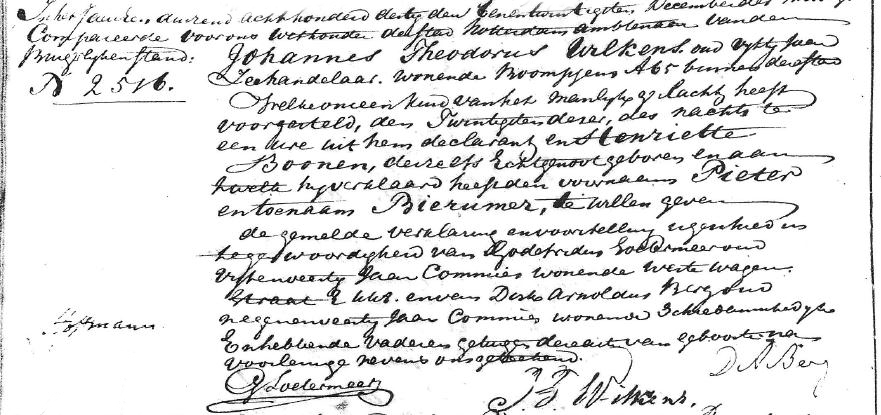 In het Jaar een duizend acht honderd dertig den Eenentwintigsten December des
Compareerde voor ons Wethouder der Stad Rotterdam ambtenaar van den
Burgerlyken stand: Johannes Theodorus Wilkens, oud vyftig Jaar
N 2516. Theehandelaar. wonende Boompjens A65 binnen deze stad
Welke ons een kind van het manlyke geslacht heeft
voorgesteld, den Twintigsten dezer, des nachts te
een ure uit hem declarant en Henriette
Boonen, deszelfs Echtgenoot geboren en aan
hwelk hy verklaard heeft den voornaam Pieter
en toenaam Bierumer, te willen geven
de gemelde verklaring en voorstelling is geschied in
tegenwoordigheid van Godefridus Zoetermeer oud
vyfenveertig Jaar Commies wonende Weste Wagen
Straat E en van Dirk Arnoldus Berg oud
negenenveertig Jaar Commies wonende Schiedamschedyk
En hebbende vader en getuigen deze act van geboorte na
voorlezinge nevens ons getekend.
D A Berg
G Zoetermeer
J. T. Wilkens.